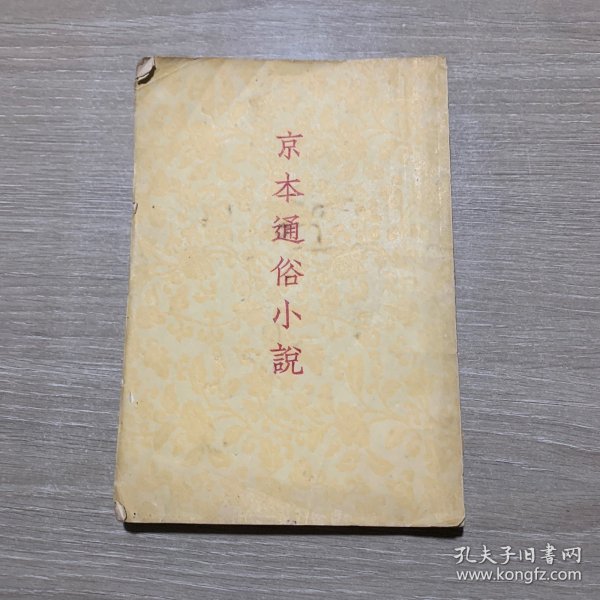 京本通俗小說
孔夫子旧書网
www.kongfz.com